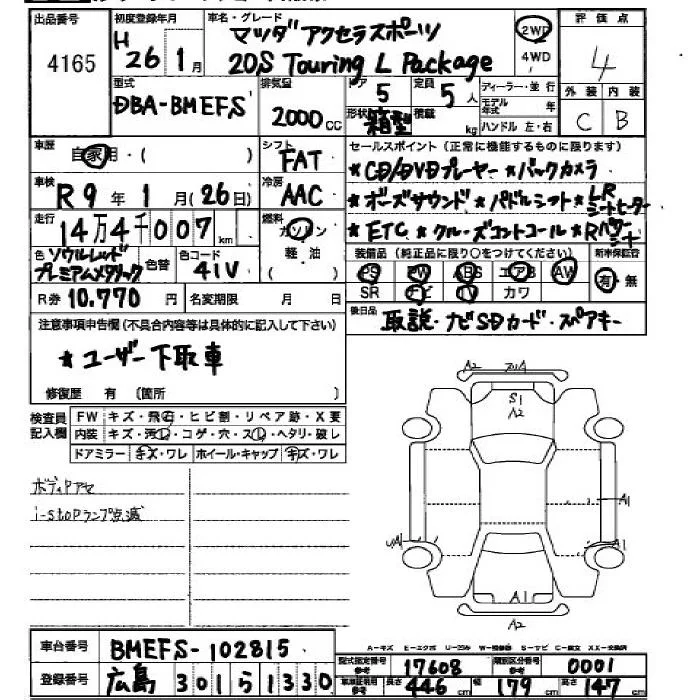 出品番号 初度登録年月 車名・グレード 評価点
4165 H26 1月 マツダ アクセラスポーツ 2WD 4WD 4
20S Touring L Package
型式 排気量 ドア 定員 ディーラー・並行 外装 内装
DBA-BMEFS 2000CC 5 5人 モデル年式 年
形状 箱型 積載 kg ハンドル 左・右 C B
車歴 自家用・( ) シフト FAT セールスポイント(正常に機能するものに限ります)
★CD/DVDプレーヤー★バックカメラ
車検 R9年1月(26日) 冷房 AAC ★ボーズサウンド★パドルシフト★LRシートヒーター
走行 14万4千007km 燃料 ガソリン 軽油 ( ) ★ETC★クルーズコントロール★Rパワーシート
色 ソウルレッドプレミアムメタリック 色替 色コード 41V 装備品(純正品に限り○をつけてください) 新車保証書
PS PW ABS エアB AW 有・無
R券 10.770円 名変期限 月 日 SR ナビ TV カワ
注意事項申告欄(不具合内容等は具体的に記入して下さい) 後日品 取説・ナビSDカード・スペアキー
★ユーザー下取車
修復歴 有 〔箇所 〕
検査員記入欄 FW キズ・飛石・ヒビ割・リペア跡・X要
内装 キズ・汚レ・コゲ・穴・スレ・ヘタリ・破レ
ドアミラー キズ・ワレ ホイール・キャップ キズ・ワレ
ボディPアセ
i-stopランプ点滅
A2
S1
A2
A1
A1
A1
A2
車台番号 BMEFS-102815
A-キズ E-エクボ U-凹み W-補修跡 S-サビ C-腐食 XX-交換済
型式指定番号 参考 17608 類別区分番号 参考 0001
登録番号 広島 301 ら 1330 車庫証明用 参考 長さ 446cm 幅 179cm 高さ 147cm